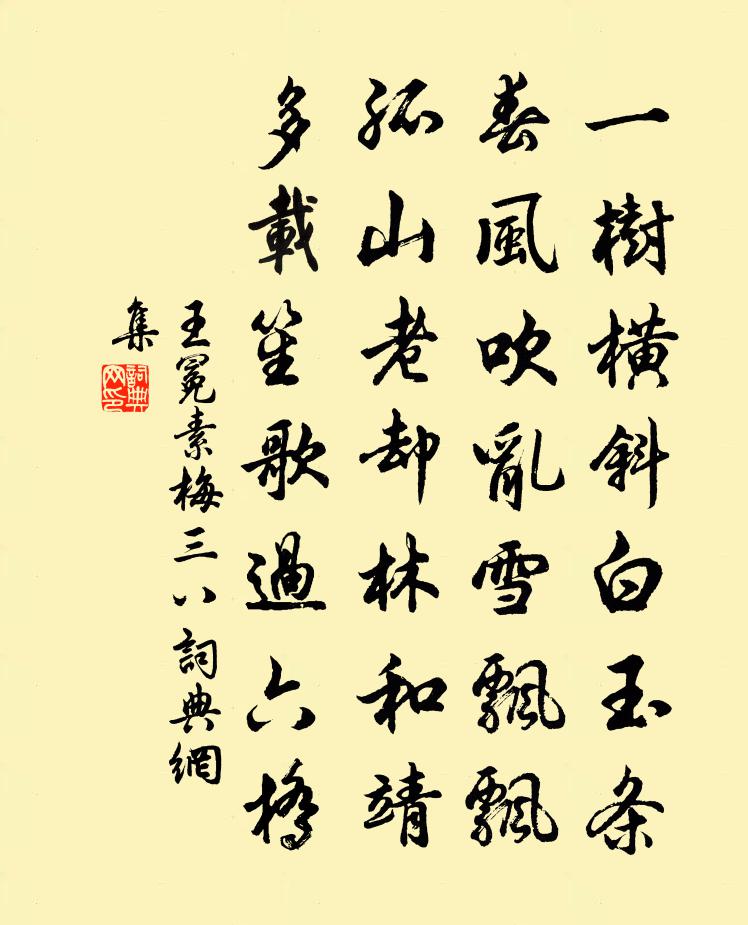 一樹橫斜白玉条
春風吹亂雪飄飄
孤山老却林和靖
多載笙歌過六橋
王冕素梅三八詞典網
集
詞典網印